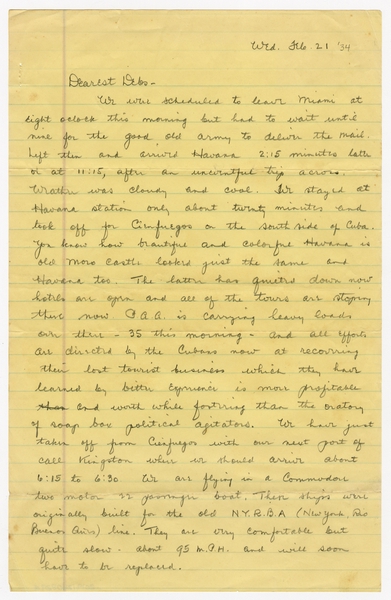 Wed. Feb. 21 '34
Dearest Debs-
We were scheduled to leave Miami at
eight oclock this morning but had to wait until
nine for the good old army to deliver the mail.
Left then and arrived Havana 2:15 minutes later
or at 11:15, after an uneventful trip across.
Weather was cloudy and cool. We stayed at
Havana station only about twenty minutes and
took off for Cienfuegos on the south side of Cuba.
You know how beautiful and colorful Havana is
old Moro Castle looked just the same and
Havana too. The latter has quieted down now
hotels are open and all of the tours are stoping
there now P.A.A. is carrying heavy loads
over there - 35 this morning - and all efforts
are directed by the Cubans now at recovering
their lost tourist business which they have
learned by bitter experience is more profitable
and worth while than the oratory
of soap box political agitators. We have just
taken off from Cienfuegos with our next port of
call Kingston where we should arrive about
6:15 to 6:30. We are flying in a Commodore
two motor 22 passenger boat. These ships were
originally built for the old N.Y.R.B.A (New York, Rio
Buenos Aires) line. They are very comfortable but
quite slow. about 95 M.P.H. and will soon
have to be replaced.